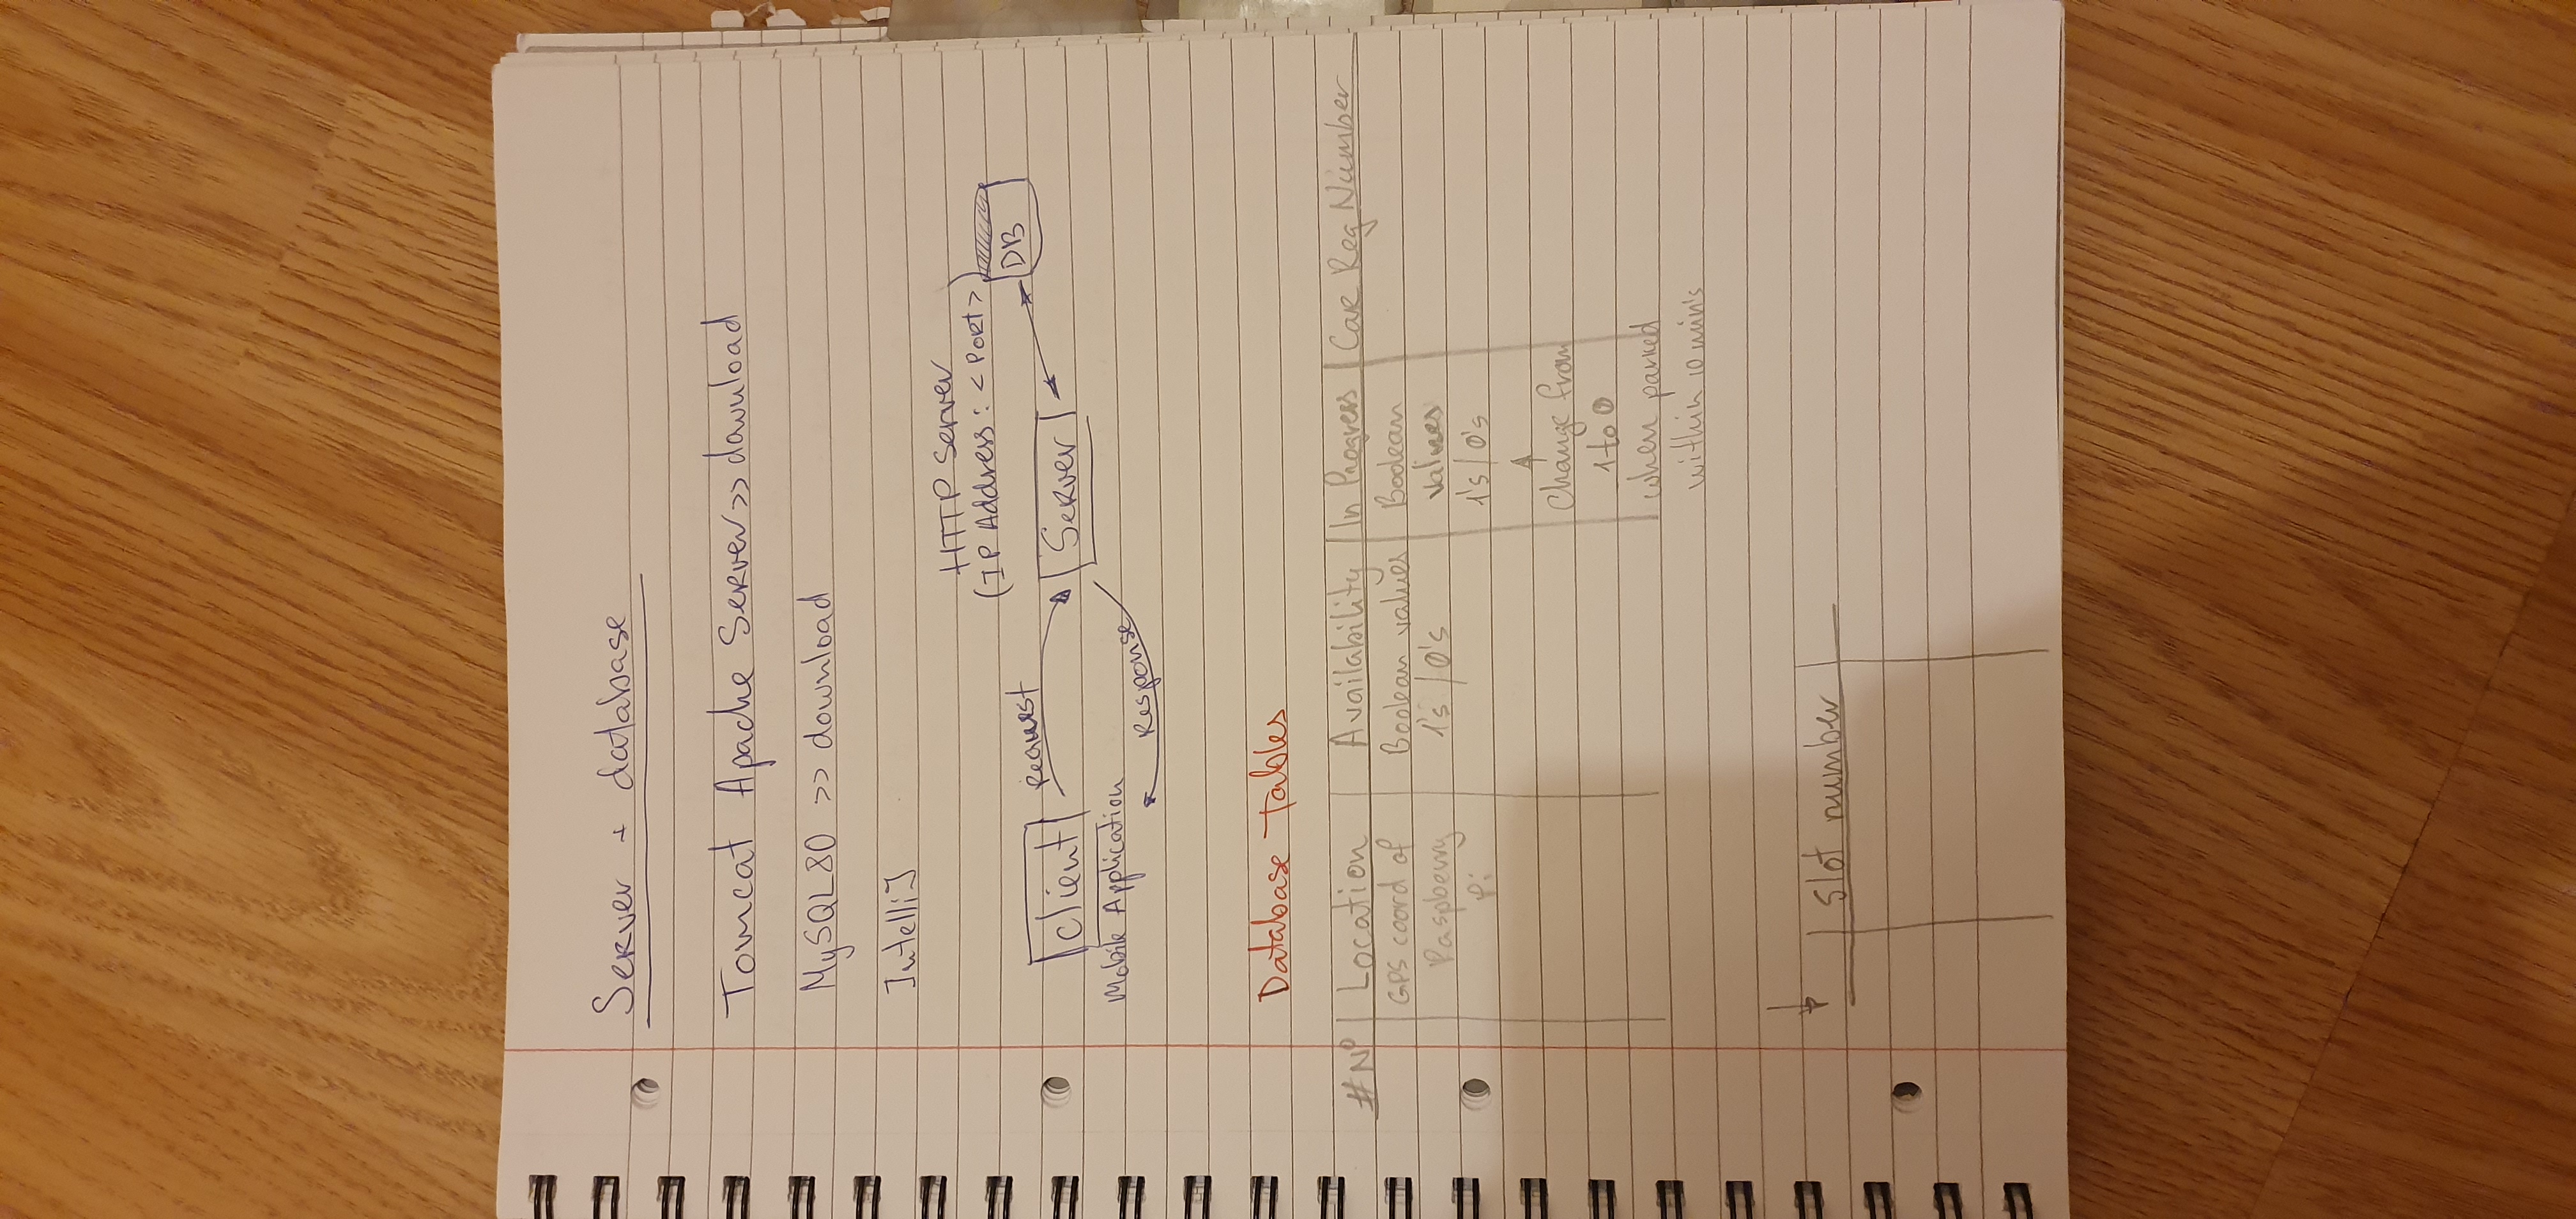 Server + database
Tomcat Apache Server >> download
MySQL80 >> download
IntelliJ
HTTP Server
(IP Address : <Port>)
DB
Client
Request
Server
Mobile Application
Response
Database Tables
#Nº | Location | Availability | In Progress | Car Reg Number
GPS coord of | Boolean values | Boolean
Raspberry | 1's / 0's | values
Pi | 1's / 0's
Change from
1 to 0
when parked
within 10 min's
Slot number